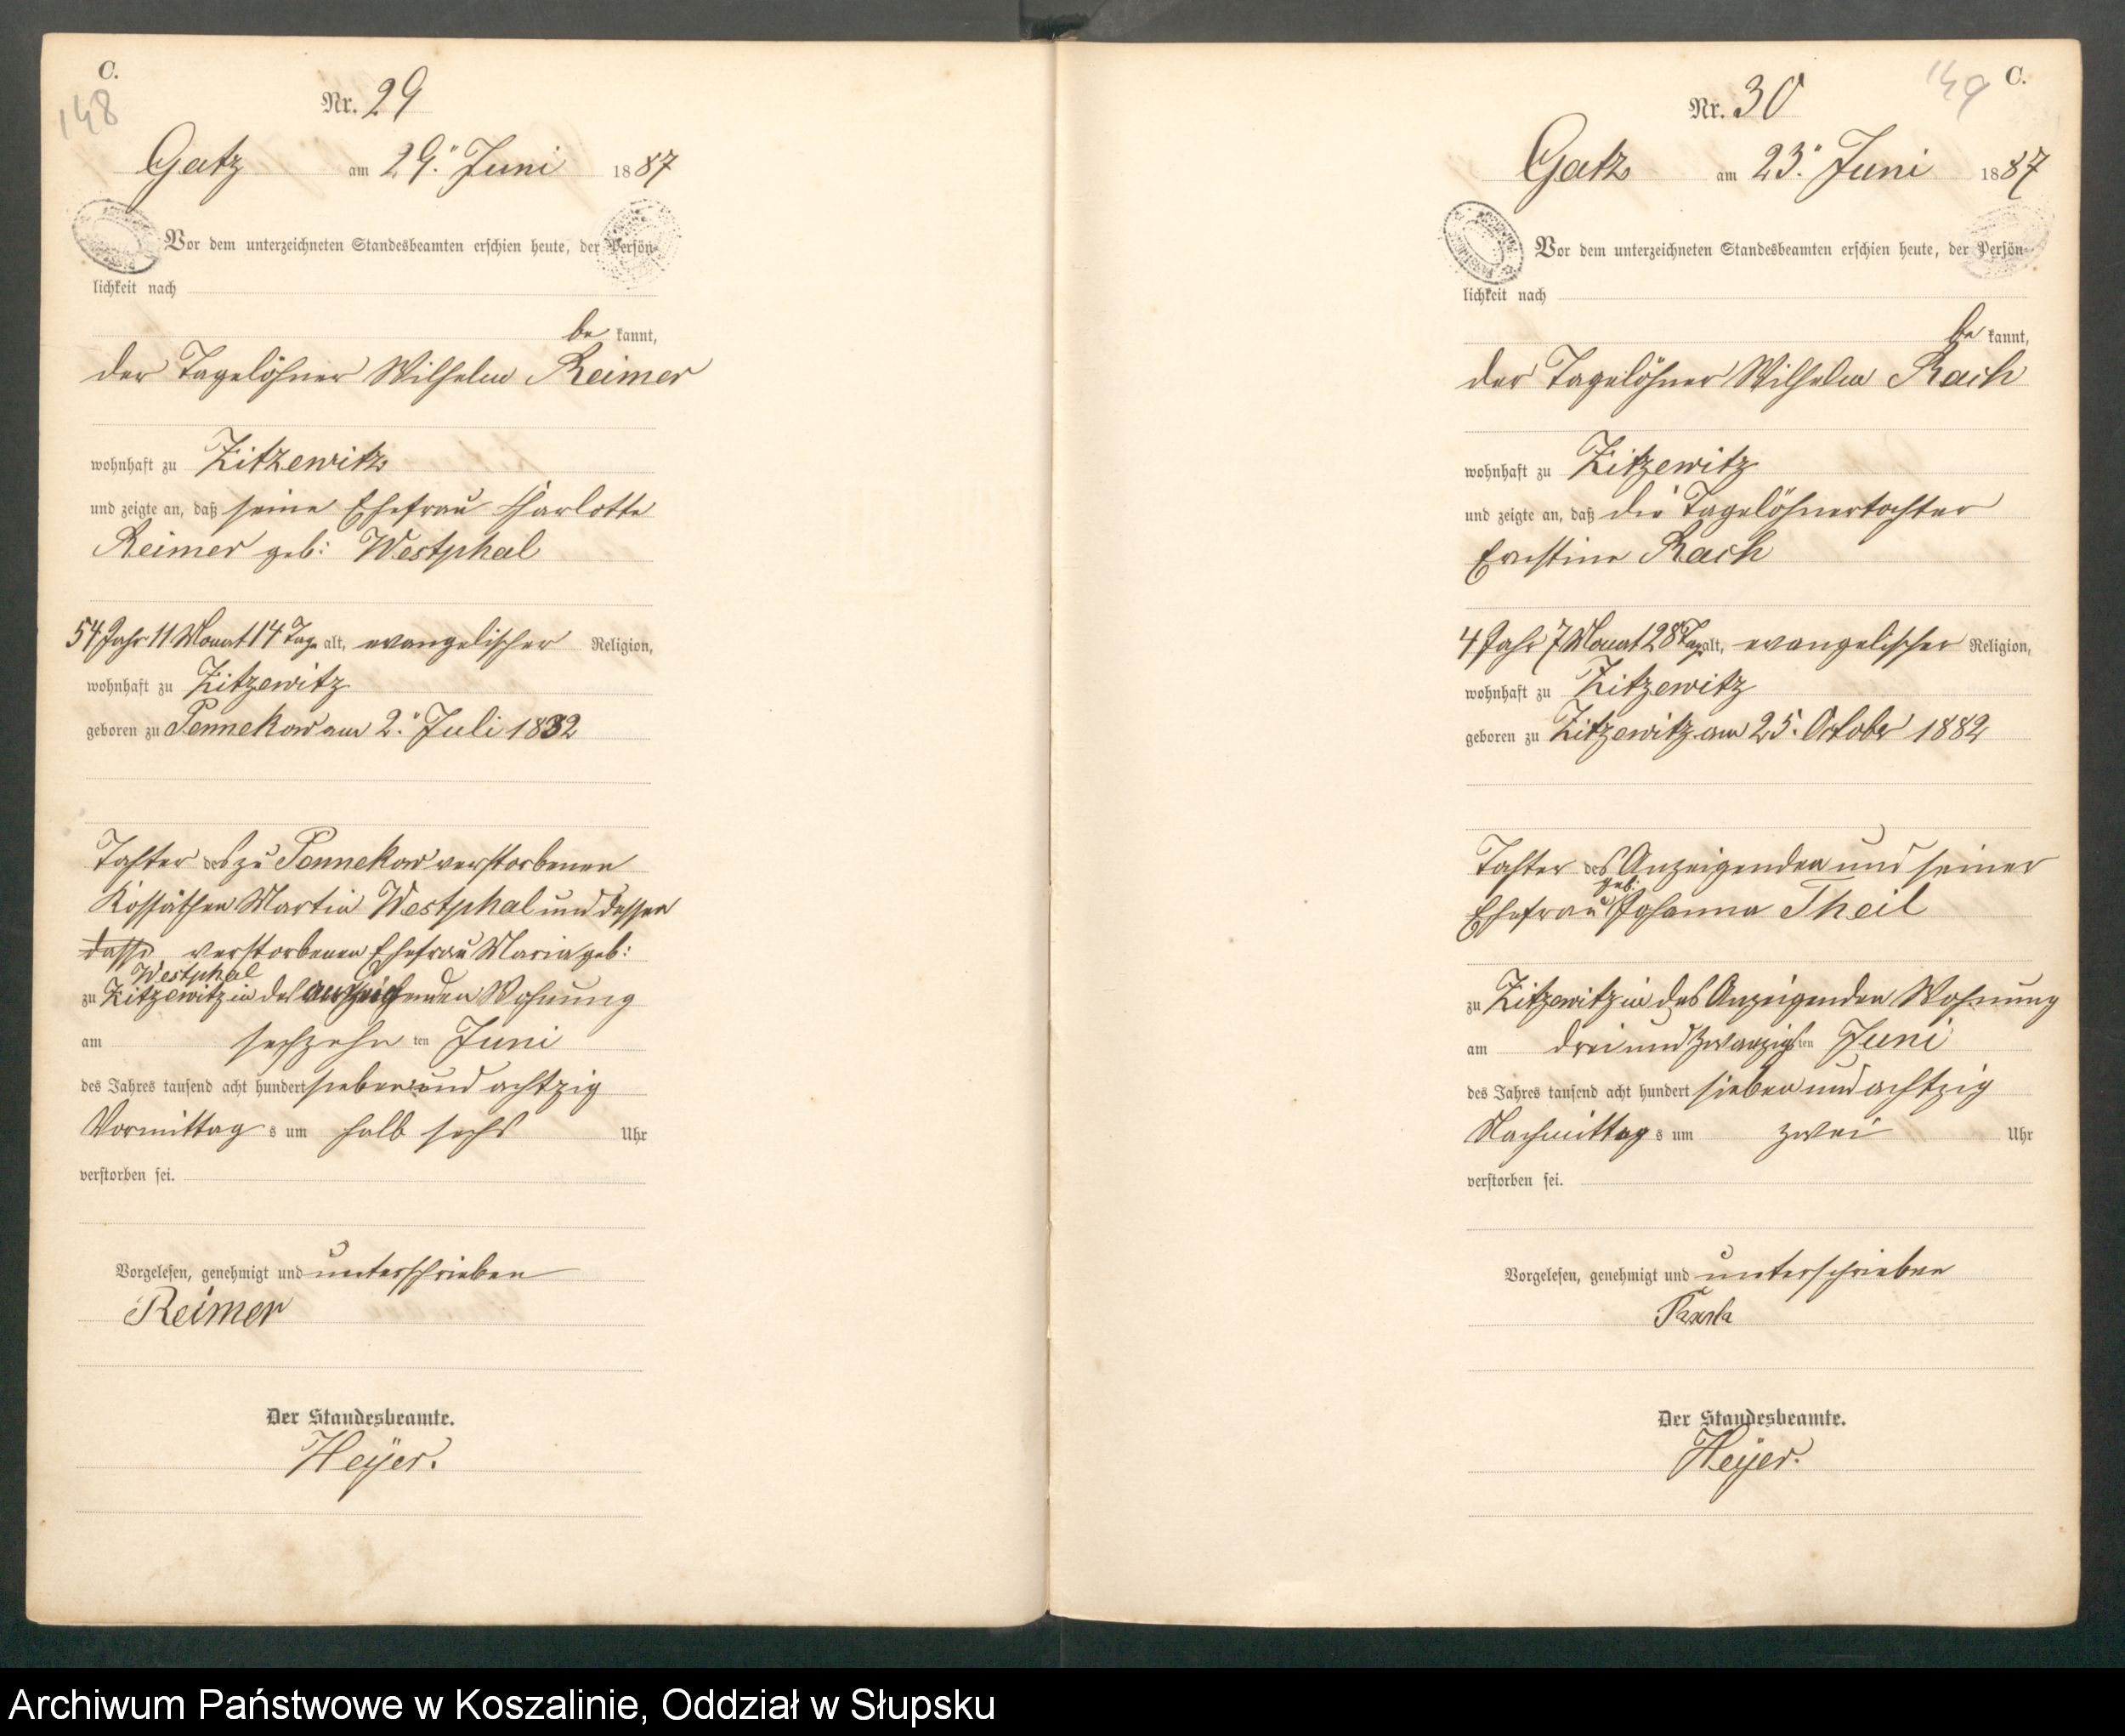 C.
148
Nr. 29
Gatz am 29. Juni 1887
Vor dem unterzeichneten Standesbeamten erschien heute, der Persön-
lichkeit nach
be kannt,
der Tagelöhner Wilhelm Reimer
wohnhaft zu Zitzewitz
und zeigte an, daß seine Ehefrau Charlotte
Reimer geb: Westphal
54 Jahr 11 Monat 14 Tage alt, evangelischer Religion,
wohnhaft zu Zitzewitz
geboren zu Pennekow am 2. Juli 1832
Tochter des zu Pennekow verstorbenen
Kossäthen Martin Westphal und dessen
verstorbenen Ehefrau Maria geb:
Westphal
zu Zitzewitz in des Anzeigenden Wohnung
am sechzehn ten Juni
des Jahres tausend acht hundert sieben und achtzig
Vormittag s um halb sechs Uhr
verstorben sei.
Vorgelesen, genehmigt und unterschrieben
Reimer
Der Standesbeamte.
Heyer.
149 C.
Nr. 30
Gatz am 23. Juni 1887
Vor dem unterzeichneten Standesbeamten erschien heute, der Persön-
lichkeit nach
be kannt,
der Tagelöhner Wilhelm Rach
wohnhaft zu Zitzewitz
und zeigte an, daß die Tagelöhnertochter
Ernstine Rach
4 Jahr 7 Monat 28 Tag alt, evangelischer Religion,
wohnhaft zu Zitzewitz
geboren zu Zitzewitz am 25. October 1882
Tochter des Anzeigenden und seiner
geb:
Ehefrau Johanna Theil
zu Zitzewitz in des Anzeigenden Wohnung
am drei und zwanzigsten Juni
des Jahres tausend acht hundert sieben und achtzig
Nachmittag s um zwei Uhr
verstorben sei.
Vorgelesen, genehmigt und unterschrieben
Der Standesbeamte.
Heyer.
Archiwum Państwowe w Koszalinie, Oddział w Słupsku